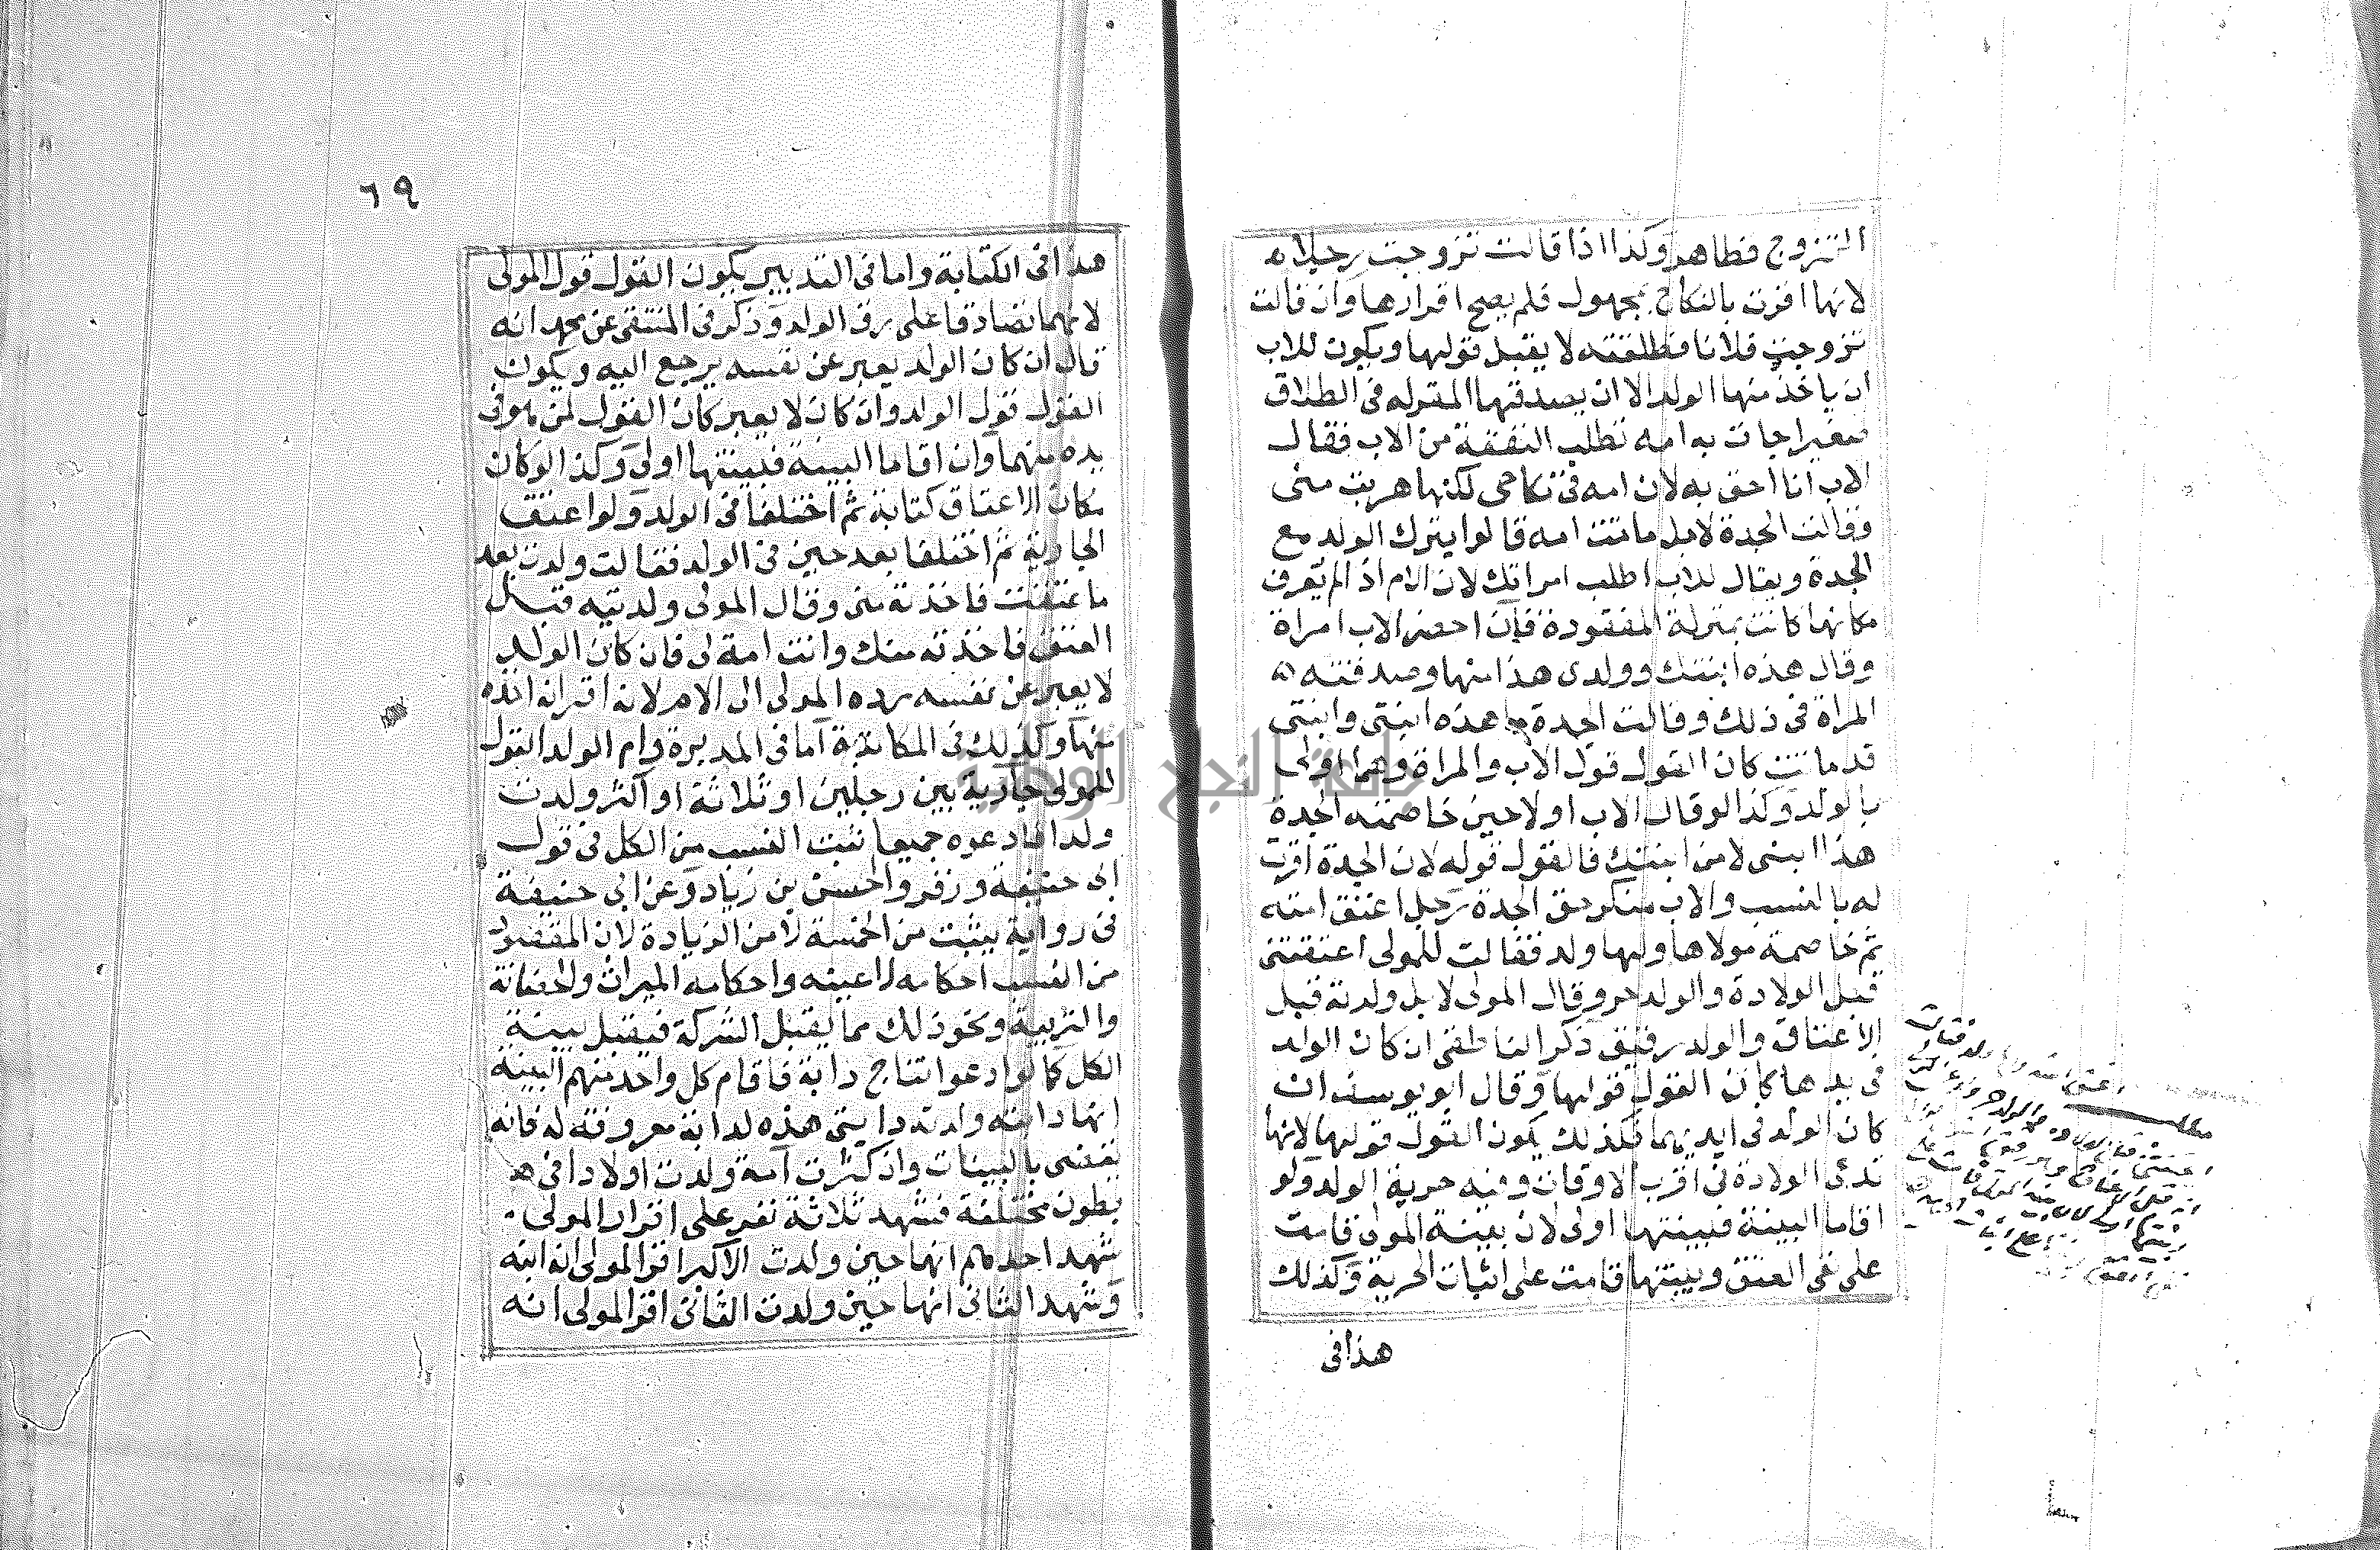 التزوج فظاهر وكذا اذا قالت تزوجت رجلا
لانها اقرت بالنكاح بمجهول فلم يصح اقرارها وان قالت
تزوجت فلانا وطلقته لا يقبل قولها ويكون للاب
ان ياخذ منها الولد الا ان يصدقها المقر له فى الطلاق
صغير اجات به امه تطلب النفقة من الاب فقال
الاب انا احق به لان امه فى نكاحى لكنها هربت منى
وقالت الجدة لا بل ماتت امه قالوا يترك الولد مع
الجدة ويقال للاب اطلب امراتك لان الام اذا لم يعرف
مكانها كانت بمنزلة المفقودة فان احضر الاب امراة
وقال هذه ابنتك وولدى هذا منها وصدقته
المراة فى ذلك وقالت الجدة ما هذه ابنتى وابنتى
قد ماتت كان القول قول الاب والمراة وهما اولى
بالولد وكذا لو قال الاب اولا حين خاصمته الجدة
هذا ابنى لا من ابنتك فالقول قوله لان الجدة اقرت
له بالنسب والاب منكر حق الجدة رجل اعتق امته
ثم خاصمة مولاها وليها ولد فقالت للمولى اعتقتنى
قبل الولادة والولد حر وقال المولى لا بل ولدته قبل
الاعتاق والولد رقيق ذكر الناطفى ان كان الولد
فى يدها كان القول قولها وقال ابو يوسف ان
كان الولد فى ايديهما فكذلك يكون القول قولها لانها
تدعى الولادة فى اقرب الاوقات وفيه حرية الولد ولو
اقاما البينة فبينتها اولى لان بينة المولى قامت
على نفى العتق وبينتها قامت على اثبات الحرية وكذلك
هذا فى
٦٩
هذا فى الكتابة واما فى التدبير يكون القول قول المولى
لانهما تصادقا على رق الولد وذكر فى المنتقى عن محمد انه
قال ان كان الولد يعبر عن نفسه يرجع اليه ويكون
القول قول الولد وان كان لا يعبر كان القول لمن هو فى
يده منهما وان اقاما البينة فبينتها اولى وكذا لو كان
مكان الاعتاق كتابة ثم اختلفا فى الولد ولو اعتق
الجارية ثم اختلفا بعد حين فى الولد فقالت ولدت بعد
ما عتقت فاخذته منى وقال المولى ولدتيه قبل
العتق فاخذته منك وانت امة لى فان كان الولد
لا يعبر عن نفسه يرده المولى الى الام لانه اقر انه اخذه
منها وكذلك فى المكاتبة اما فى المدبرة وام الولد القول
للمولى جارية بين رجلين او ثلاثة او اكثر ولدت
ولدا فادعوه جميعا ثبت النسب من الكل فى قول
ابى حنيفة وزفر والحسن بن زياد وعن ابى حنيفة
فى رواية يثبت من الخمسة لا من الزيادة لان المقصود
من النسب احكامه لا عينه واحكامه الميراث والحضانة
والتربية ونحو ذلك مما يقبل الشركة فيقبل بينة
الكل كما لو ادعوا نتاج دابة فاقام كل واحد منهم البينة
انها دابته ولدته دابتى هذه لدابة معروفة له فانه
يقضى بالبينات وان كثرت امة ولدت اولادا فى
بطون مختلفة فشهد ثلاثة نفر على اقرار المولى
شهد احدهم انها حين ولدت الاكبر اقر المولى انه ابنه
وشهد الثانى انها حين ولدت الثانى اقر المولى انه
جامعة النجاح الوطنية